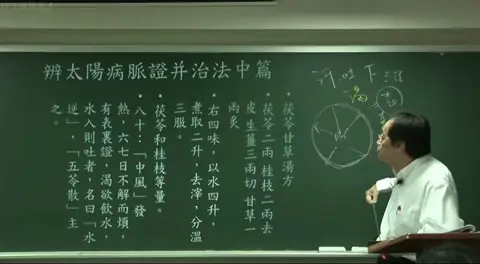 辨太陽病脈證并治法中篇
汗吐下
• 茯苓甘草湯方
• 茯苓二兩 桂枝二兩去
皮生薑三兩切 甘草一
兩炙
• 右四味，以水四升，
煮取二升，去滓，分溫
三服。
• 茯苓和桂枝等量。
• 八十：「中風」發
熱，六七日不解而煩，
有表裏證，渴欲飲水，
水入則吐者，名曰「水
逆」，「五苓散」主
之。